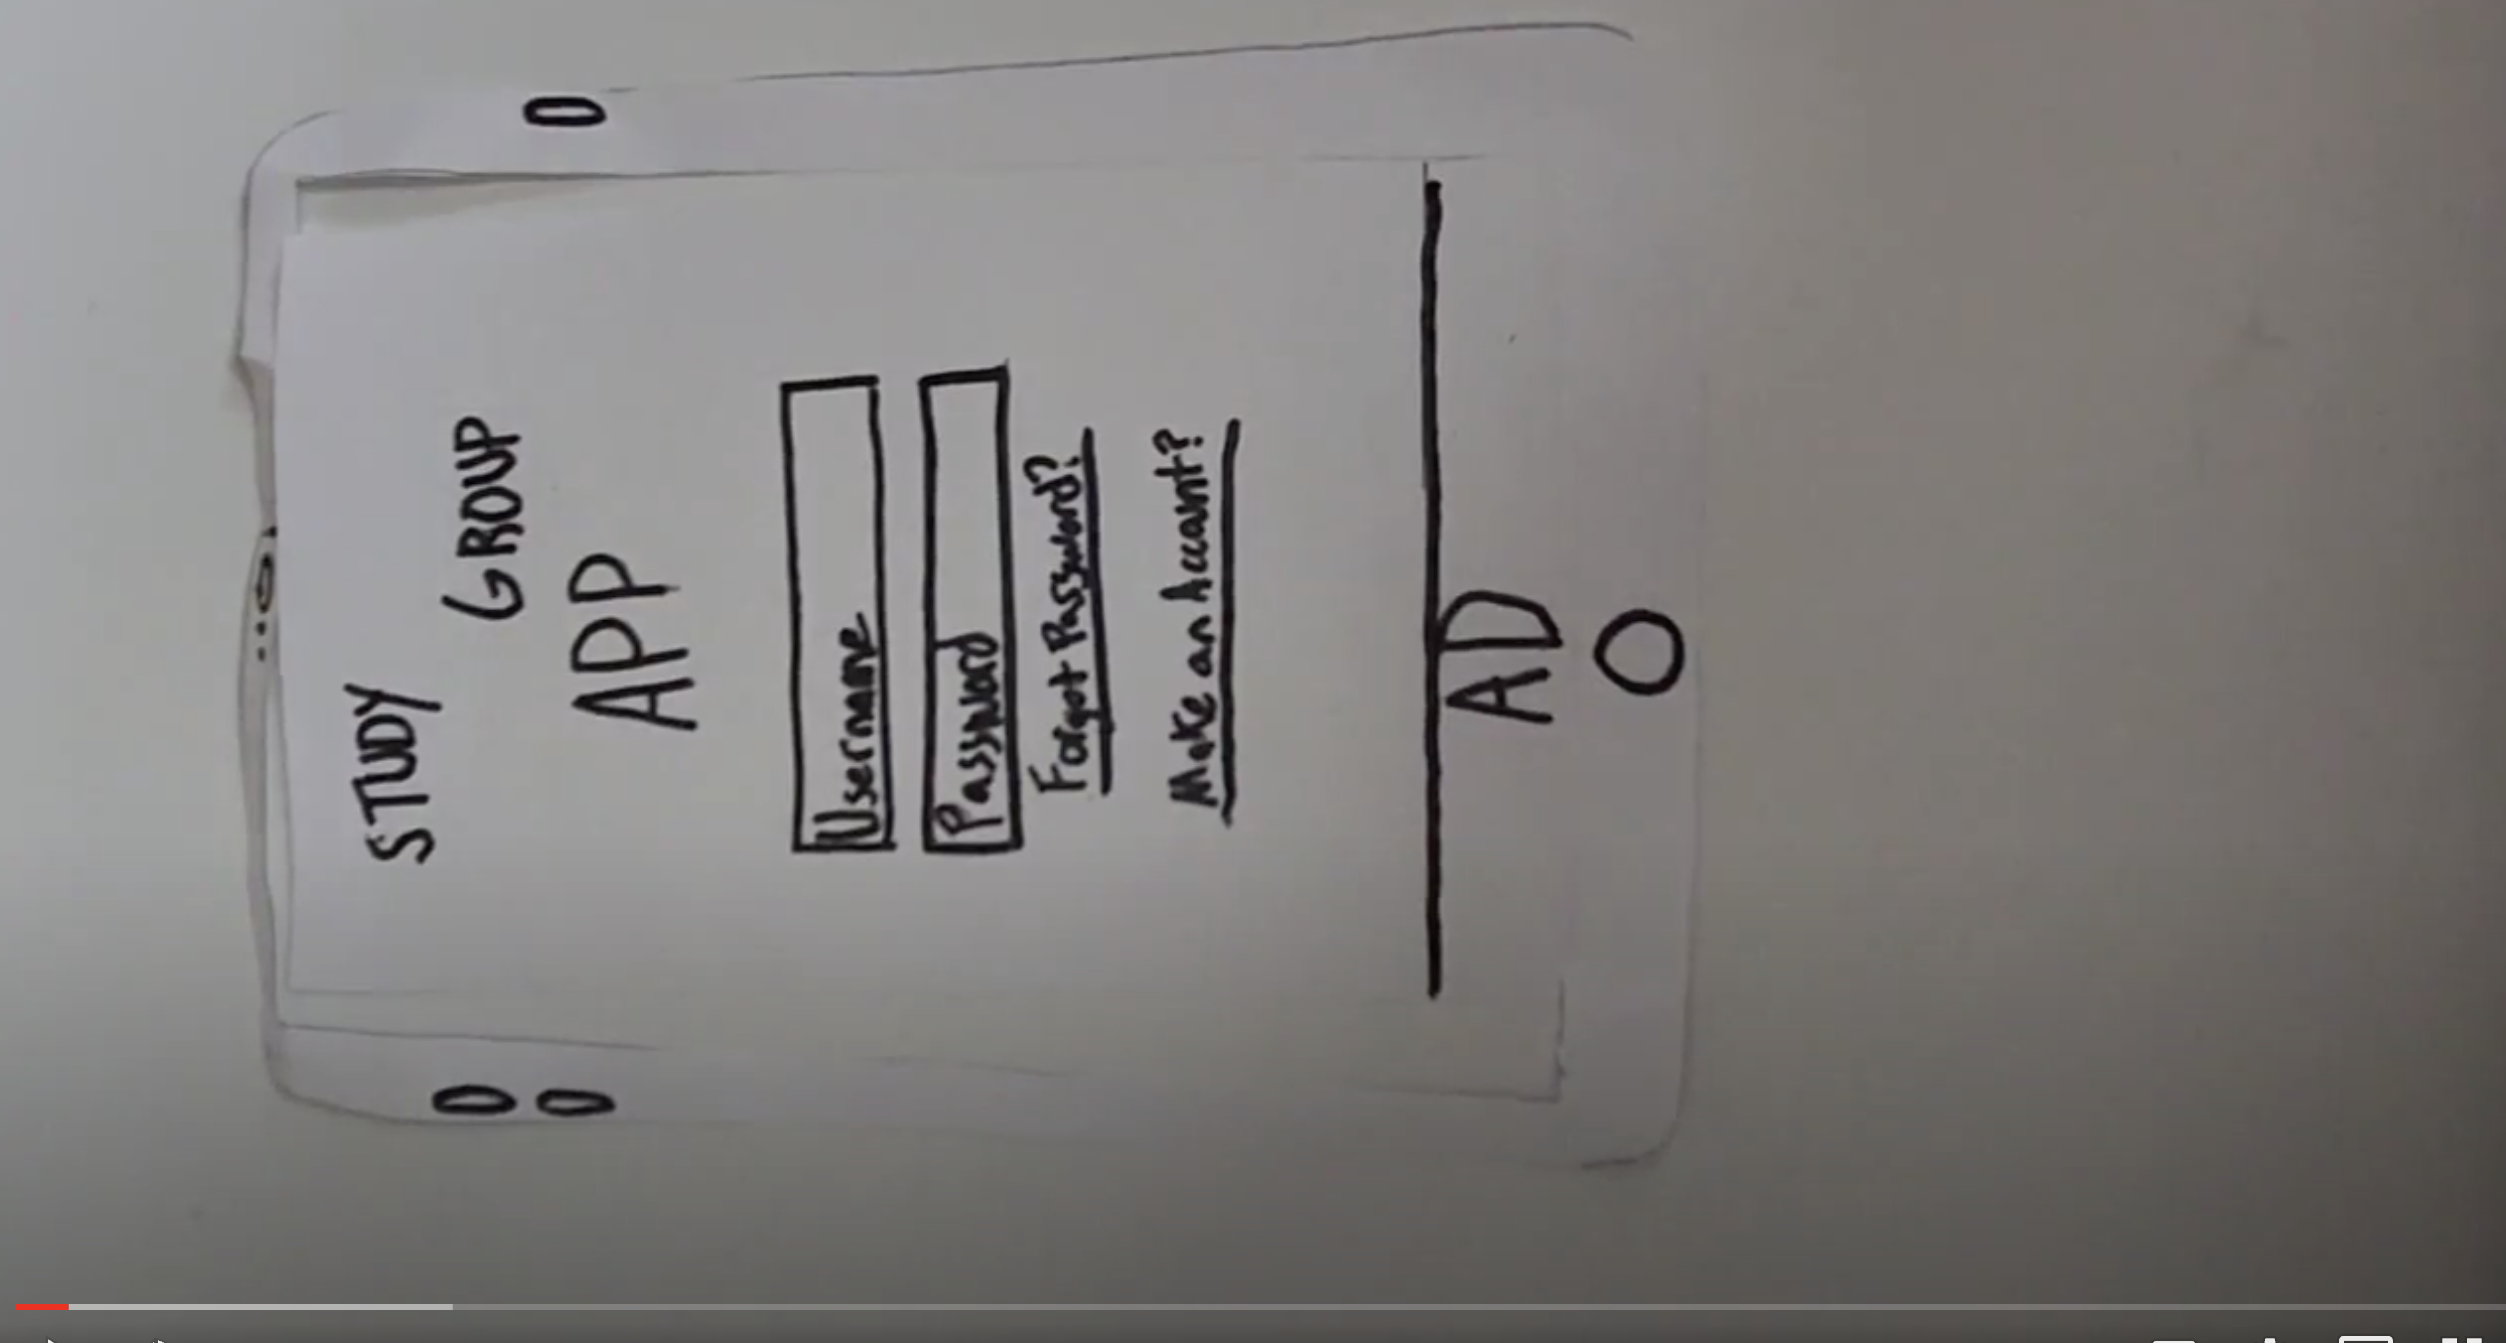 STUDY
GROUP
APP
Username
Password
Forgot Password?
Make an Account?
AD